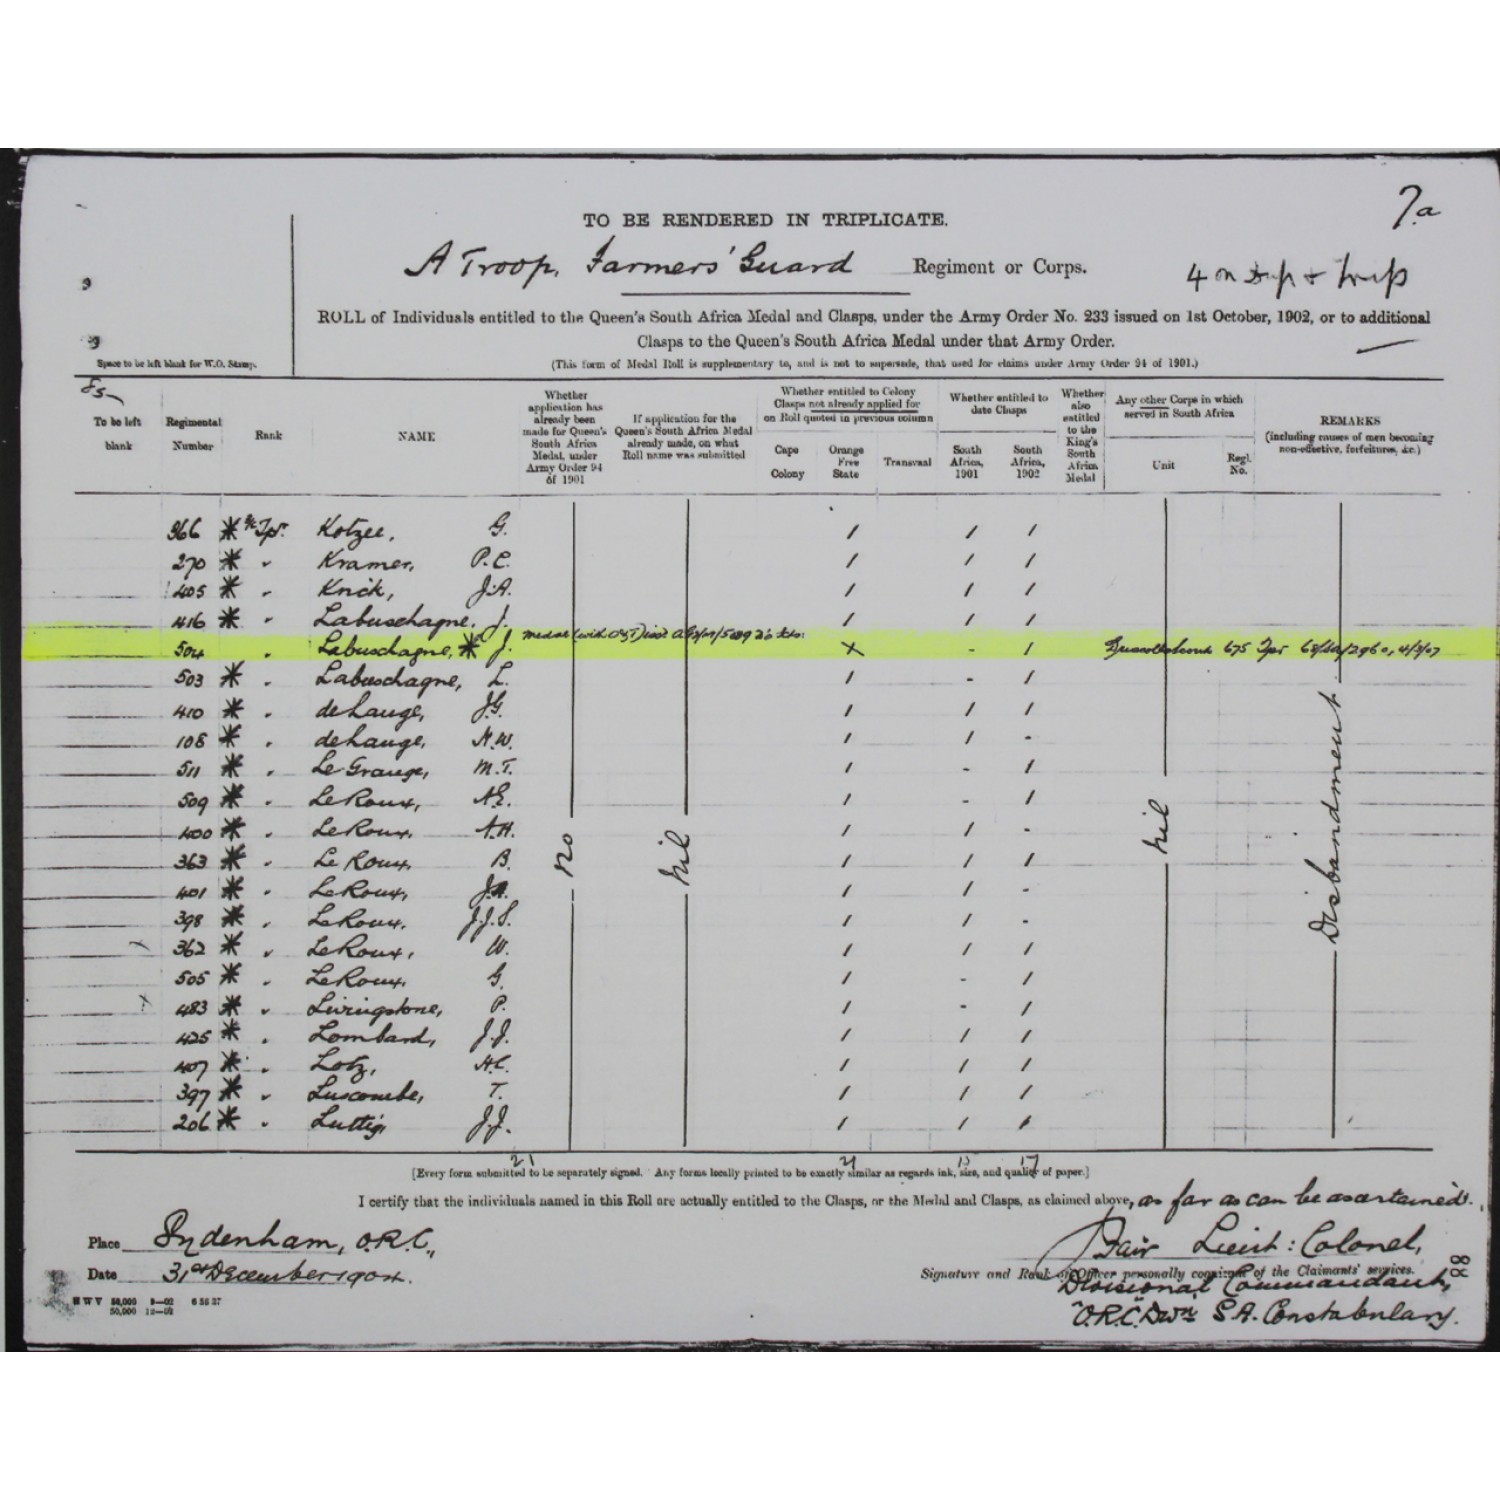 7.a
TO BE RENDERED IN TRIPLICATE.
A Troop, Farmers' Guard Regiment or Corps.
4 on
ROLL of Individuals entitled to the Queen's South Africa Medal and Clasps, under the Army Order No. 233 issued on 1st October, 1902, or to additional
Clasps to the Queen's South Africa Medal under that Army Order.
Space to be left blank for W.O. Stamp.
(This form of Medal Roll is supplementary to, and is not to supersede, that used for claims under Army Order 94 of 1901.)
85
To be left blank
Regimental Number
Rank
NAME
Whether application has already been made for Queen's South Africa Medal, under Army Order 94 of 1901
If application for the Queen's South Africa Medal already made, on what Roll name was submitted
Whether entitled to Colony Clasps not already applied for on Roll quoted in previous column
Cape Colony
Orange Free State
Transvaal
Whether entitled to date Clasps
South Africa, 1901
South Africa, 1902
Whether also entitled to the King's South Africa Medal
Any other Corps in which served in South Africa
Unit
Regl. No.
REMARKS
(including causes of men becoming non-effective, forfeitures, &c.)
366 * Tpr. Kotzee, G. / / /
270 * " Kramer, P.C. / / /
405 * " Krick, J.A. / / /
416 * " Labuschagne, J. / / /
504 " Labuschagne, * J. medal (with x - / 675 Tpr 4/3/07
503 * " Labuschagne, L. / - /
410 * " deLange, J.G. / / /
108 * " deLange, N.W. / / -
511 * " Le Grange, M.T. / - /
509 * " LeRoux, A.E. / - /
400 * " LeRoux, A.H. / / -
363 * " Le Roux, B. / / /
401 * " LeRoux, / / -
398 * " LeRoux, J.J.S. / / -
x 362 * " LeRoux, W. / / /
505 * " LeRoux, G. / - /
x 483 * " Livingstone, P. / - /
425 * " Lombard, J.J. / / /
407 * " Lotz, H.C. / / /
397 * " Luscombe, T. / / /
206 * " Luttig, J.J. / / /
no
nil
nil
Disbandment
21 21 15 17
[Every form submitted to be separately signed. Any forms locally printed to be exactly similar as regards ink, size, and quality of paper.]
I certify that the individuals named in this Roll are actually entitled to the Clasps, or the Medal and Clasps, as claimed above, as far as can be ascertained.
Place Sydenham, O.R.C.,
Date 31st December 1904.
Fair Lieut: Colonel,
Signature and Rank of Officer personally cognizant of the Claimants' services.
Divisional Commandant,
"O.R.C." Dwn S.A. Constabulary.
88
H W V 50,000 9—02 6 56 37
50,000 12—02